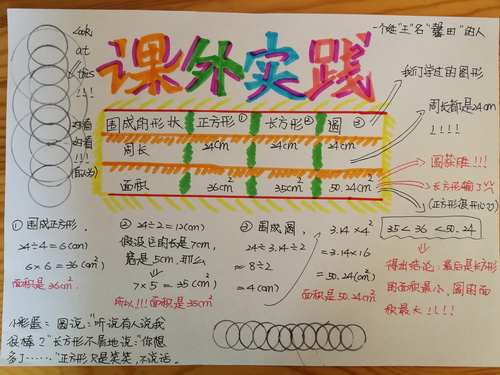 Look
at
this
!!!
一个姓"王"名"馨田"的人
课外实践
我们学过的图形
周长都是24cm
!!!!
围成的形状 正方形① 长方形② 圆③
周长 24cm 24cm 24cm
面积 36cm² 35cm² 50.24cm²
圆获胜!!!
长方形输了
(正方形很开心)
35<36<50.24
得出结论:最后是长方形
的面积最小,圆的面
积最大!!!!
① 围成正方形,
24÷4=6(cm)
6×6=36(cm²)
面积是36cm²
② 24÷2=12(cm)
假设它的长是7cm,
宽是5cm.那么
7×5=35(cm²)
所以!!!面积是35cm²
③ 围成圆,
24÷3.14÷2
≈8÷2
=4(cm)
3.14×4²
=3.14×16
=50.24(cm²)
面积是50.24cm²
小彩蛋:圆说:"听说有人说我
很棒?"长方形不屑地说:"你想
多了……"正方形只是笑笑,不说话。